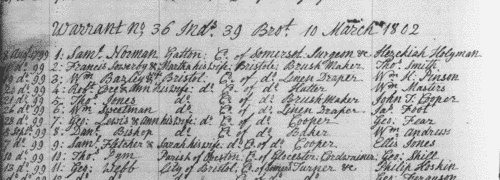 Warrant No 36 Ind. 39 Brot. 10 March 1802
Augt 99 1: Saml. Norman Yatton Co. of Somerset Surgeon & Hezekiah Holyman
do. 99 2: Francis & Martha his wife Bristol Brush Maker Thos. Smith
do. 99 3: Wm. Bazley Bristol Co. of do. Linen Draper Wm. K. Pinson
do. 99 4: Robt. & Ann his wife do. Co. of do. Hatter Wm. Masters
do. 99 5: Thos. Jones do. Co. of do. Brush Maker John T. Cooper
do. 99 6: Wm. do. Co. of do. Linen Draper Jas. Foot
do. 99 7: Geo. Lewis & Ann his wife do. Co. of do. Cooper Geo. Fear
Sept. 99 8: Danl. Bishop do. Co. of do. Baker Wm. Andrews
7 do. 99 9: Saml. Fletcher & Sarah his wife do. Co. of do. Cooper Ellis Jones
10 do. 99 10: Thos. Pym Parish of Co. of Glocester Cordwainer Geo.
13 do. 99 11: Geo. Webb City of Bristol Co. of Turner &c. Philip Hoskin
Geo. Ferguson